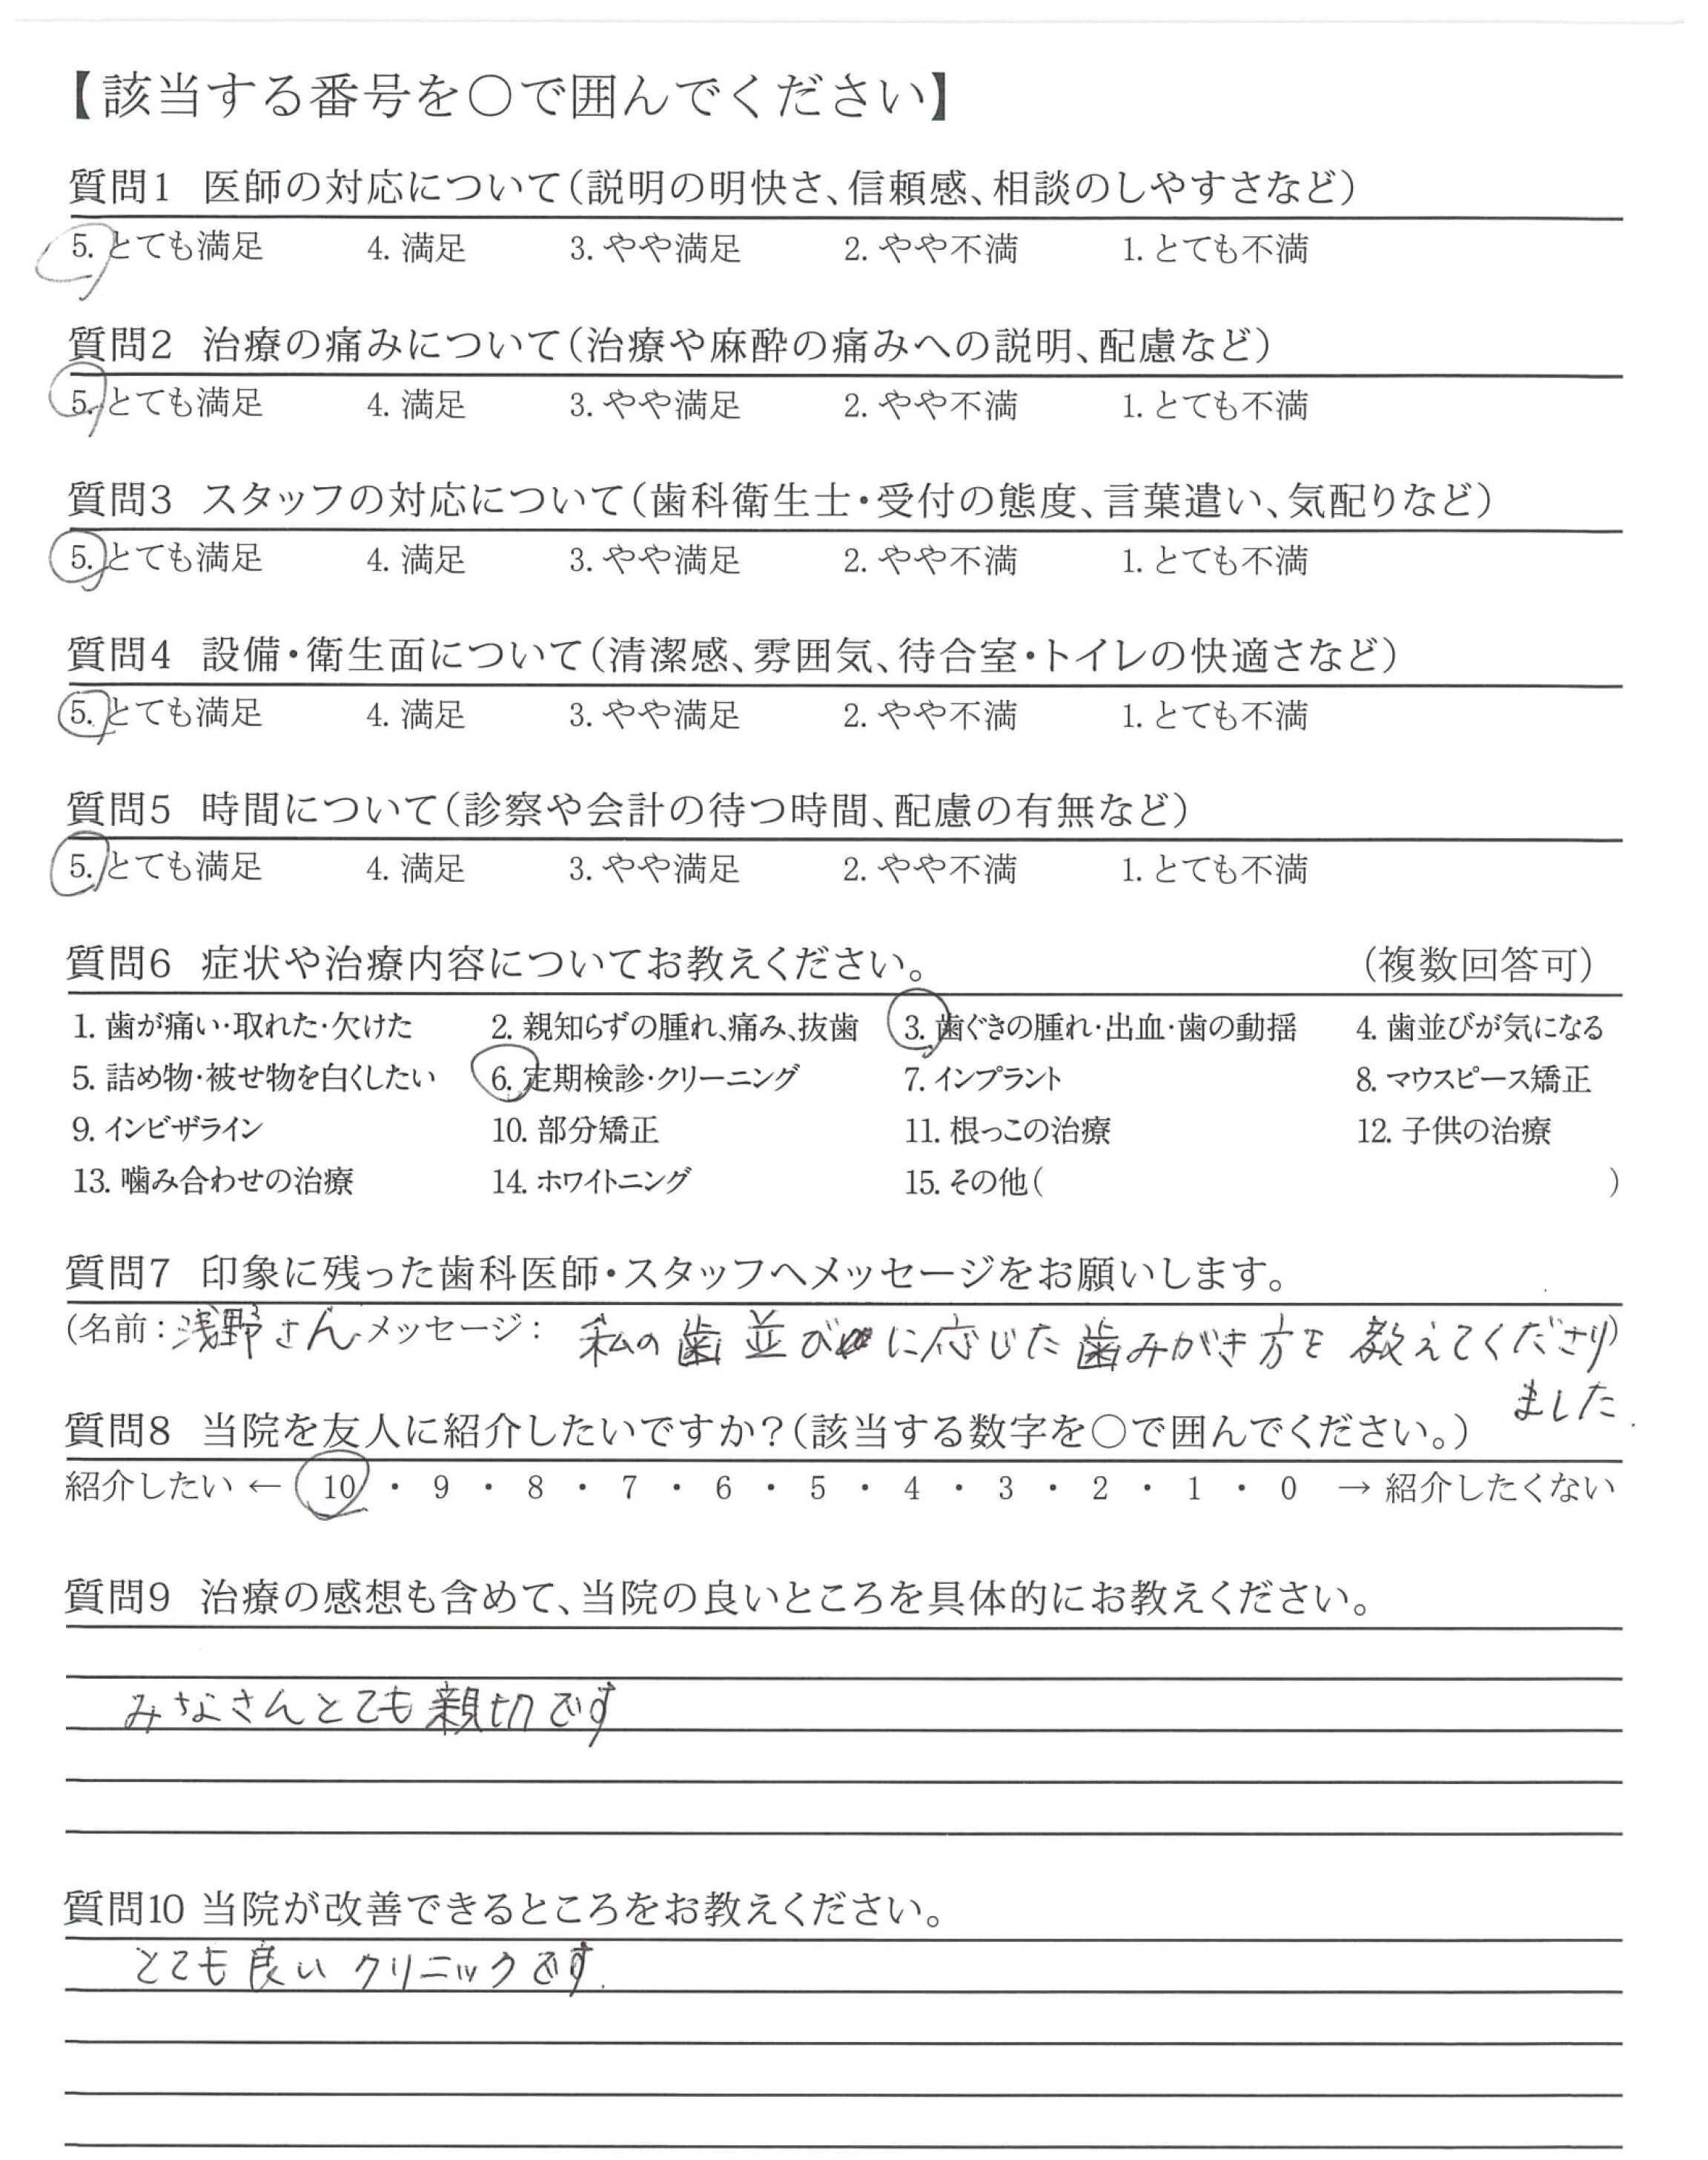 【該当する番号を○で囲んでください】
質問1 医師の対応について(説明の明快さ、信頼感、相談のしやすさなど)
5. とても満足 4. 満足 3. やや満足 2. やや不満 1. とても不満
質問2 治療の痛みについて(治療や麻酔の痛みへの説明、配慮など)
5. とても満足 4. 満足 3. やや満足 2. やや不満 1. とても不満
質問3 スタッフの対応について(歯科衛生士・受付の態度、言葉遣い、気配りなど)
5. とても満足 4. 満足 3. やや満足 2. やや不満 1. とても不満
質問4 設備・衛生面について(清潔感、雰囲気、待合室・トイレの快適さなど)
5. とても満足 4. 満足 3. やや満足 2. やや不満 1. とても不満
質問5 時間について(診察や会計の待つ時間、配慮の有無など)
5. とても満足 4. 満足 3. やや満足 2. やや不満 1. とても不満
質問6 症状や治療内容についてお教えください。 (複数回答可)
1. 歯が痛い・取れた・欠けた 2. 親知らずの腫れ、痛み、抜歯 3. 歯ぐきの腫れ・出血・歯の動揺 4. 歯並びが気になる
5. 詰め物・被せ物を白くしたい 6. 定期検診・クリーニング 7. インプラント 8. マウスピース矯正
9. インビザライン 10. 部分矯正 11. 根っこの治療 12. 子供の治療
13. 噛み合わせの治療 14. ホワイトニング 15. その他( )
質問7 印象に残った歯科医師・スタッフへメッセージをお願いします。
(名前：浅野さん メッセージ： 私の歯並びに応じた歯みがき方を教えてくださり)
ました.
質問8 当院を友人に紹介したいですか？(該当する数字を○で囲んでください。)
紹介したい ← 10 ・ 9 ・ 8 ・ 7 ・ 6 ・ 5 ・ 4 ・ 3 ・ 2 ・ 1 ・ 0 → 紹介したくない
質問9 治療の感想も含めて、当院の良いところを具体的にお教えください。
みなさんとても親切です
質問10 当院が改善できるところをお教えください。
とても良いクリニックです.